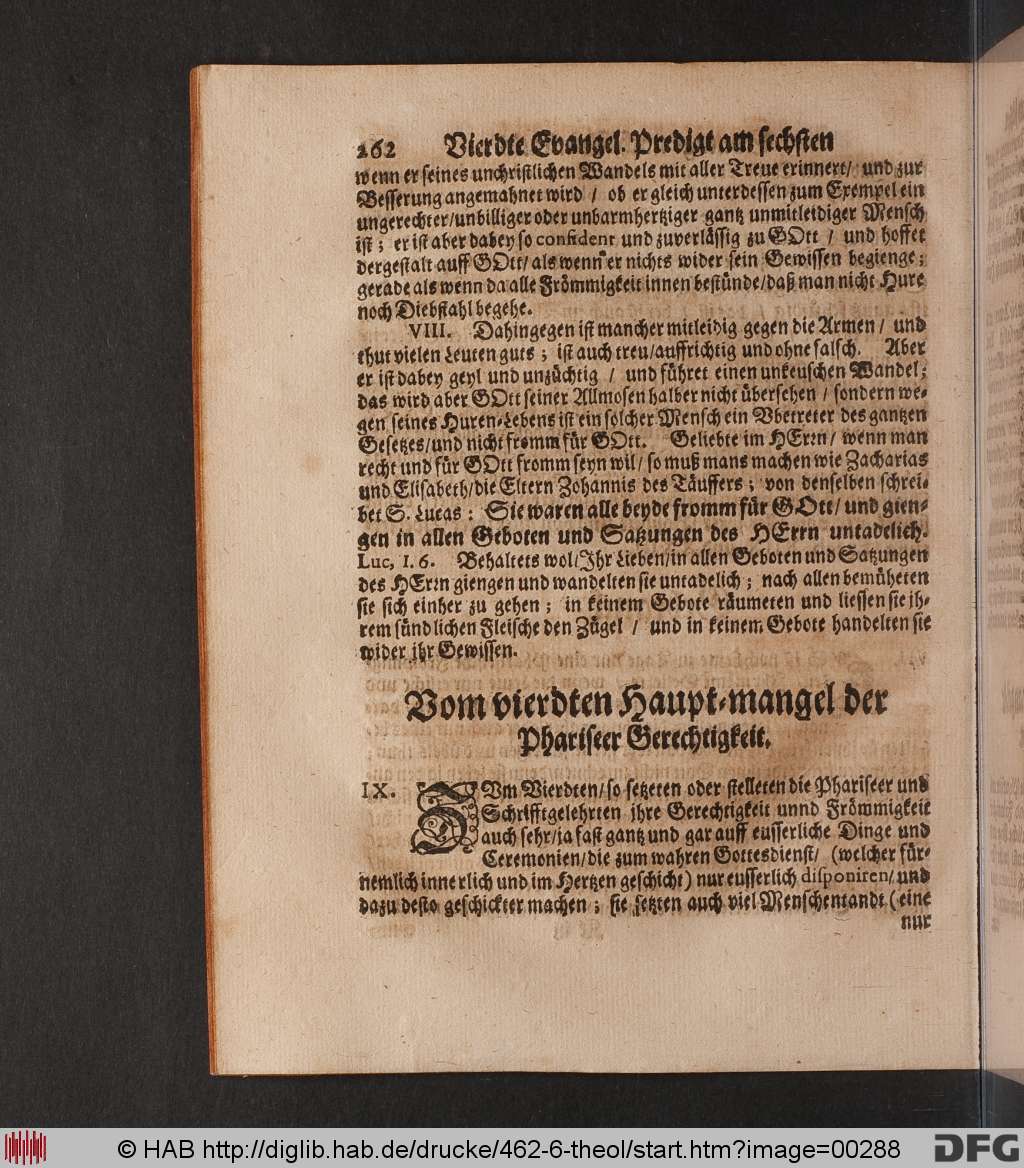 262 Vierdte Evangel. Predigt am sechsten
wenn er seines unchristlichen Wandels mit aller Treue erinnert/ und zur
Besserung angemahnet wird / ob er gleich unterdessen zum Exempel ein
ungerechter/unbilliger oder unbarmhertziger gantz unmitleidiger Mensch
ist; er ist aber dabey so confident und zuverlässig zu GOtt / und hoffet
dergestalt auff GOtt/ als wenn er nichts wider sein Gewissen begienge;
gerade als wenn da alle Frömmigkeit innen bestünde/daß man nicht Hure
noch Diebstahl begehe.
VIII. Dahingegen ist mancher mitleidig gegen die Armen / und
thut vielen Leuten guts; ist auch treu/auffrichtig und ohne falsch. Aber
er ist dabey geyl und unzüchtig / und führet einen unkeuschen Wandel;
das wird aber GOtt seiner Allmosen halber nicht übersehen / sondern we-
gen seines Huren-Lebens ist ein solcher Mensch ein Vbetreter des gantzen
Gesetzes/und nicht fromm für GOtt. Geliebte im HErrn/ wenn man
recht und für GOtt fromm seyn wil/ so muß mans machen wie Zacharias
und Elisabeth/die Eltern Johannis des Täuffers; von denselben schrei-
bet S. Lucas: Sie waren alle beyde fromm für GOtt/ und gien-
gen in allen Geboten und Satzungen des HErrn untadelich.
Luc, 1. 6. Behaltets wol/Ihr Lieben/in allen Geboten und Satzungen
des HErrn giengen und wandelten sie untadelich; nach allen bemüheten
sie sich einher zu gehen; in keinem Gebote räumeten und liessen sie ih-
rem sündlichen Fleische den Zügel / und in keinem Gebote handelten sie
wider ihr Gewissen.
Vom vierdten Haupt-mangel der
Phariseer Gerechtigkeit.
IX. ZUm Vierdten/so setzeten oder stelleten die Phariseer und
Schrifftgelehrten ihre Gerechtigkeit unnd Frömmigkeit
auch sehr/ja fast gantz und gar auff eusserliche Dinge und
Ceremonien/die zum wahren Gottesdienst/ (welcher für-
nemlich innerlich und im Hertzen geschicht) nur eusserlich disponiren/ und
dazu desto geschickter machen; sie setzten auch viel Menschentandt (eine
nur
© HAB http://diglib.hab.de/drucke/462-6-theol/start.htm?image=00288
DFG